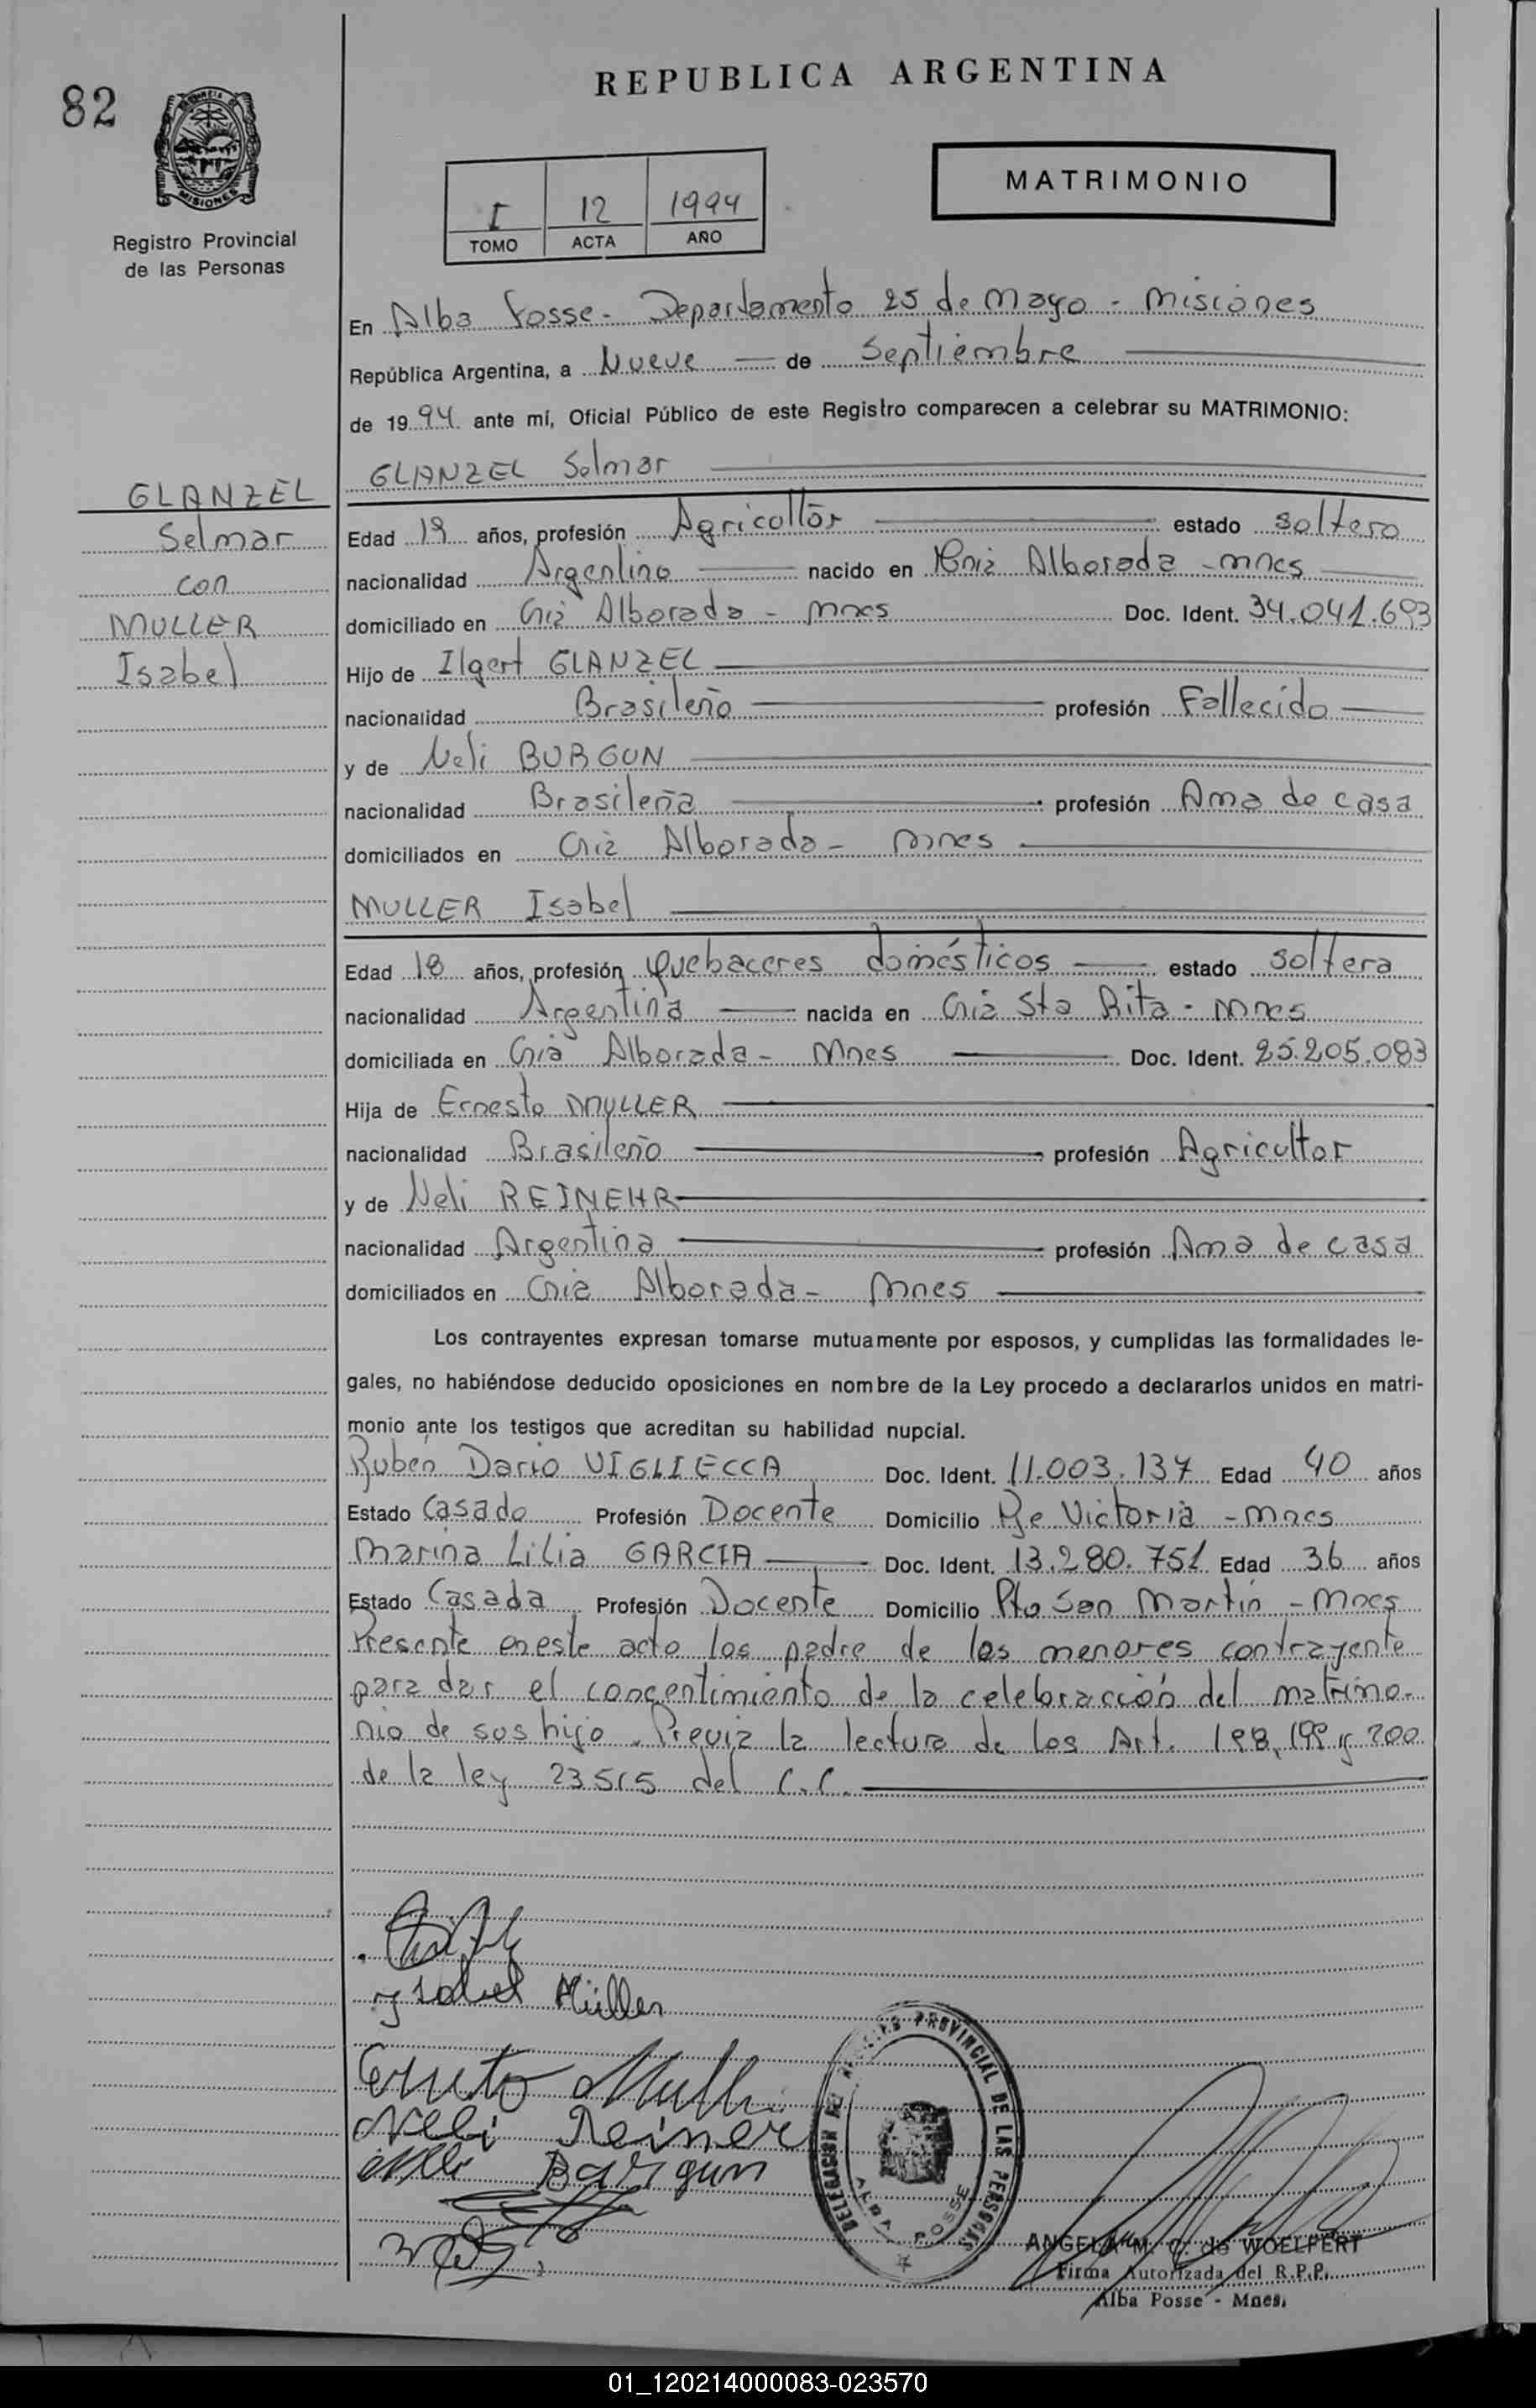 82
REPUBLICA ARGENTINA
MISIONES
Registro Provincial
de las Personas
I 12 1994
TOMO ACTA AÑO
MATRIMONIO
En Alba Posse - Departamento 25 de Mayo - Misiones
República Argentina, a Nueve de Septiembre
de 1994 ante mí, Oficial Público de este Registro comparecen a celebrar su MATRIMONIO:
GLANZEL Selmar
GLANZEL
Selmar
con
MULLER
Isabel
Edad 19 años, profesión Agricultor estado soltero
nacionalidad Argentino nacido en Cnia Alborada - mnes
domiciliado en Cnia Alborada - mnes Doc. Ident. 34.041.693
Hijo de Ilgert GLANZEL
nacionalidad Brasileño profesión Fallecido
y de Neli BURGUN
nacionalidad Brasileña profesión Ama de casa
domiciliados en Cnia Alborada - mnes
MULLER Isabel
Edad 18 años, profesión Quehaceres domésticos estado soltera
nacionalidad Argentina nacida en Cnia Sta Rita - mnes
domiciliada en Cnia Alborada - Mnes Doc. Ident. 25.205.083
Hija de Ernesto MULLER
nacionalidad Brasileño profesión Agricultor
y de Neli REINEHR
nacionalidad Argentina profesión Ama de casa
domiciliados en Cnia Alborada - Mnes
Los contrayentes expresan tomarse mutuamente por esposos, y cumplidas las formalidades le-
gales, no habiéndose deducido oposiciones en nombre de la Ley procedo a declararlos unidos en matri-
monio ante los testigos que acreditan su habilidad nupcial.
Ruben Dario VIGLIECCA Doc. Ident. 11.003.137 Edad 40 años
Estado Casado Profesión Docente Domicilio Pje Victoria - mnes
Marina Lilia GARCIA Doc. Ident. 13.280.751 Edad 36 años
Estado Casada Profesión Docente Domicilio Pto San Martin - Mnes
Presente en este acto los padre de los menores contrayente
para dar el concentimiento de la celebración del matrimo-
nio de sus hijo. Previa la lectura de los Art. 198, 199 y 200
de la ley 23.515 del C.C.
Ysabel Müller
Ernesto Muller
Nelli Reiner
Nelli Burgun
DELEGACION DEL REGISTRO PROVINCIAL DE LAS PERSONAS
ALBA POSSE
ANGELA M. C. de WOELFERT
Firma Autorizada del R.P.P.
Alba Posse - Mnes.
01_120214000083-023570